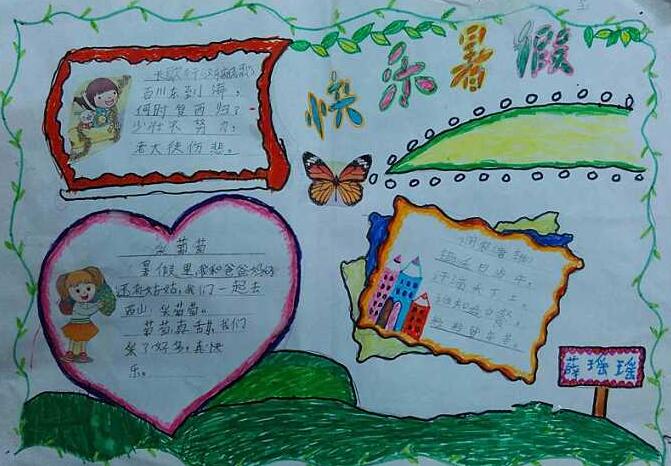 快乐暑假
长歌行(汉乐府民歌)
百川东到海，
何时复西归？
少壮不努力，
老大徒伤悲。
采葡萄
暑假里，我和爸爸妈妈
还有姑姑，我们一起去
西山，采葡萄。
葡萄真甜，我们
采了好多，真快
乐。
锄禾日当午，
汗滴禾下土。
谁知盘中餐，
粒粒皆辛苦。
薛瑶瑶